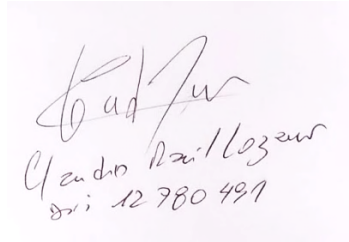 Claudio Raul Lozano
DNI 12 780 491